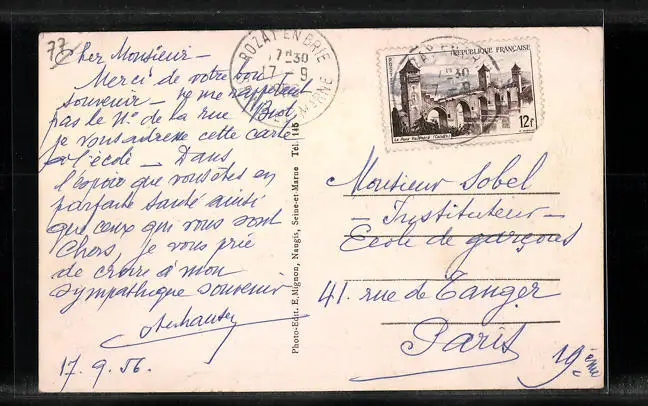 77
Cher Monsieur -
Merci de votre bon
souvenir - ne me rappelant
pas le N° de la rue
je vous adresse cette carte
à l'école - Dans
l'espoir que vous êtes en
parfaite santé ainsi
que ceux qui vous sont
chers, je vous prie
de croire à mon
sympathique souvenir
17.9.56.
Photo-Edit. E. Mignon, Nangis, Seine-et-Marne Tél. 145
ROZAY EN BRIE
17H30
17-9
MARNE
REPUBLIQUE FRANÇAISE
12F
Le Pont Valentré (Cahors)
Monsieur Sobel
- Instituteur -
Ecole de garçons
41. rue de Tanger
Paris 19ème